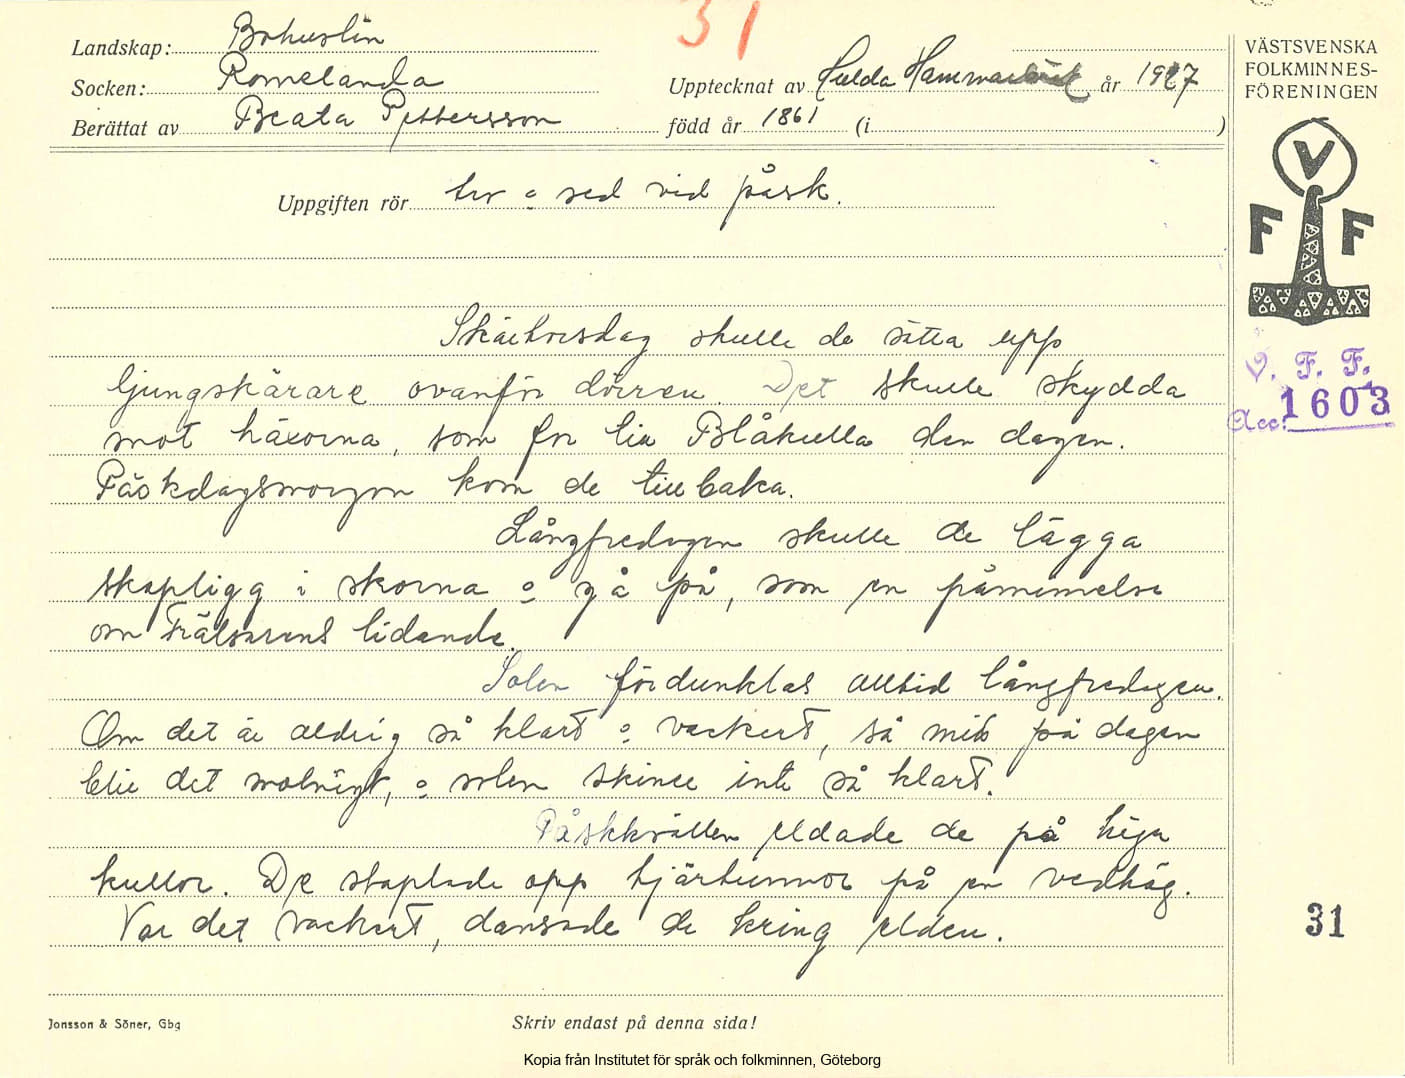 31
Landskap: Bohuslän
Socken: Romelanda
Upptecknat av Hulda Hammarbäck år 1927
Berättat av Beata Pettersson född år 1861 (i )
VÄSTSVENSKA
FOLKMINNES-
FÖRENINGEN
V
F F
Uppgiften rör tro o sed vid påsk.
V. F. F.
Acc. 1603
Skärtorsdag skulle de sätta upp
ljungskärare ovanför dörren. Det skulle skydda
mot häxorna, som for till Blåkulla den dagen.
Påskdagsmorgon kom de tillbaka.
Långfredagen skulle de lägga
skopligg i skorna o gå på, som en påminnelse
om Frälsarens lidande.
Solen fördunklas alltid långfredagen.
Om det är aldrig så klart o vackert, så mitt på dagen
blir det molnigt, o solen skiner inte så klart.
Påskkvällen eldade de på höga
kullor. De staplade opp tjärtunnor på en vedhög.
Var det vackert, dansade de kring elden.
31
Jonsson & Söner, Gbg
Skriv endast på denna sida!
Kopia från Institutet för språk och folkminnen, Göteborg